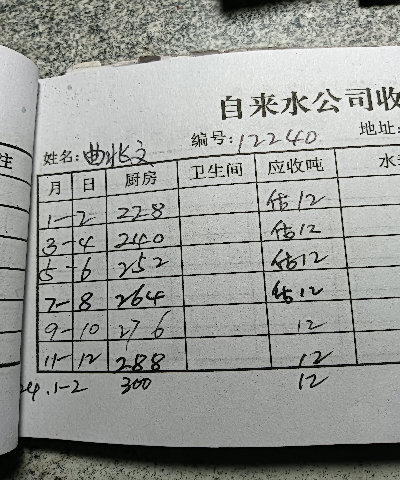 自来水公司收
姓名: 曲兆文 编号: 12240 地址:
注
月 日 厨房 卫生间 应收吨 水
1-2 228 估12
3-4 240 估12
5-6 252 估12
7-8 264 估12
9-10 276 12
11-12 288 12
24.1-2 300 12